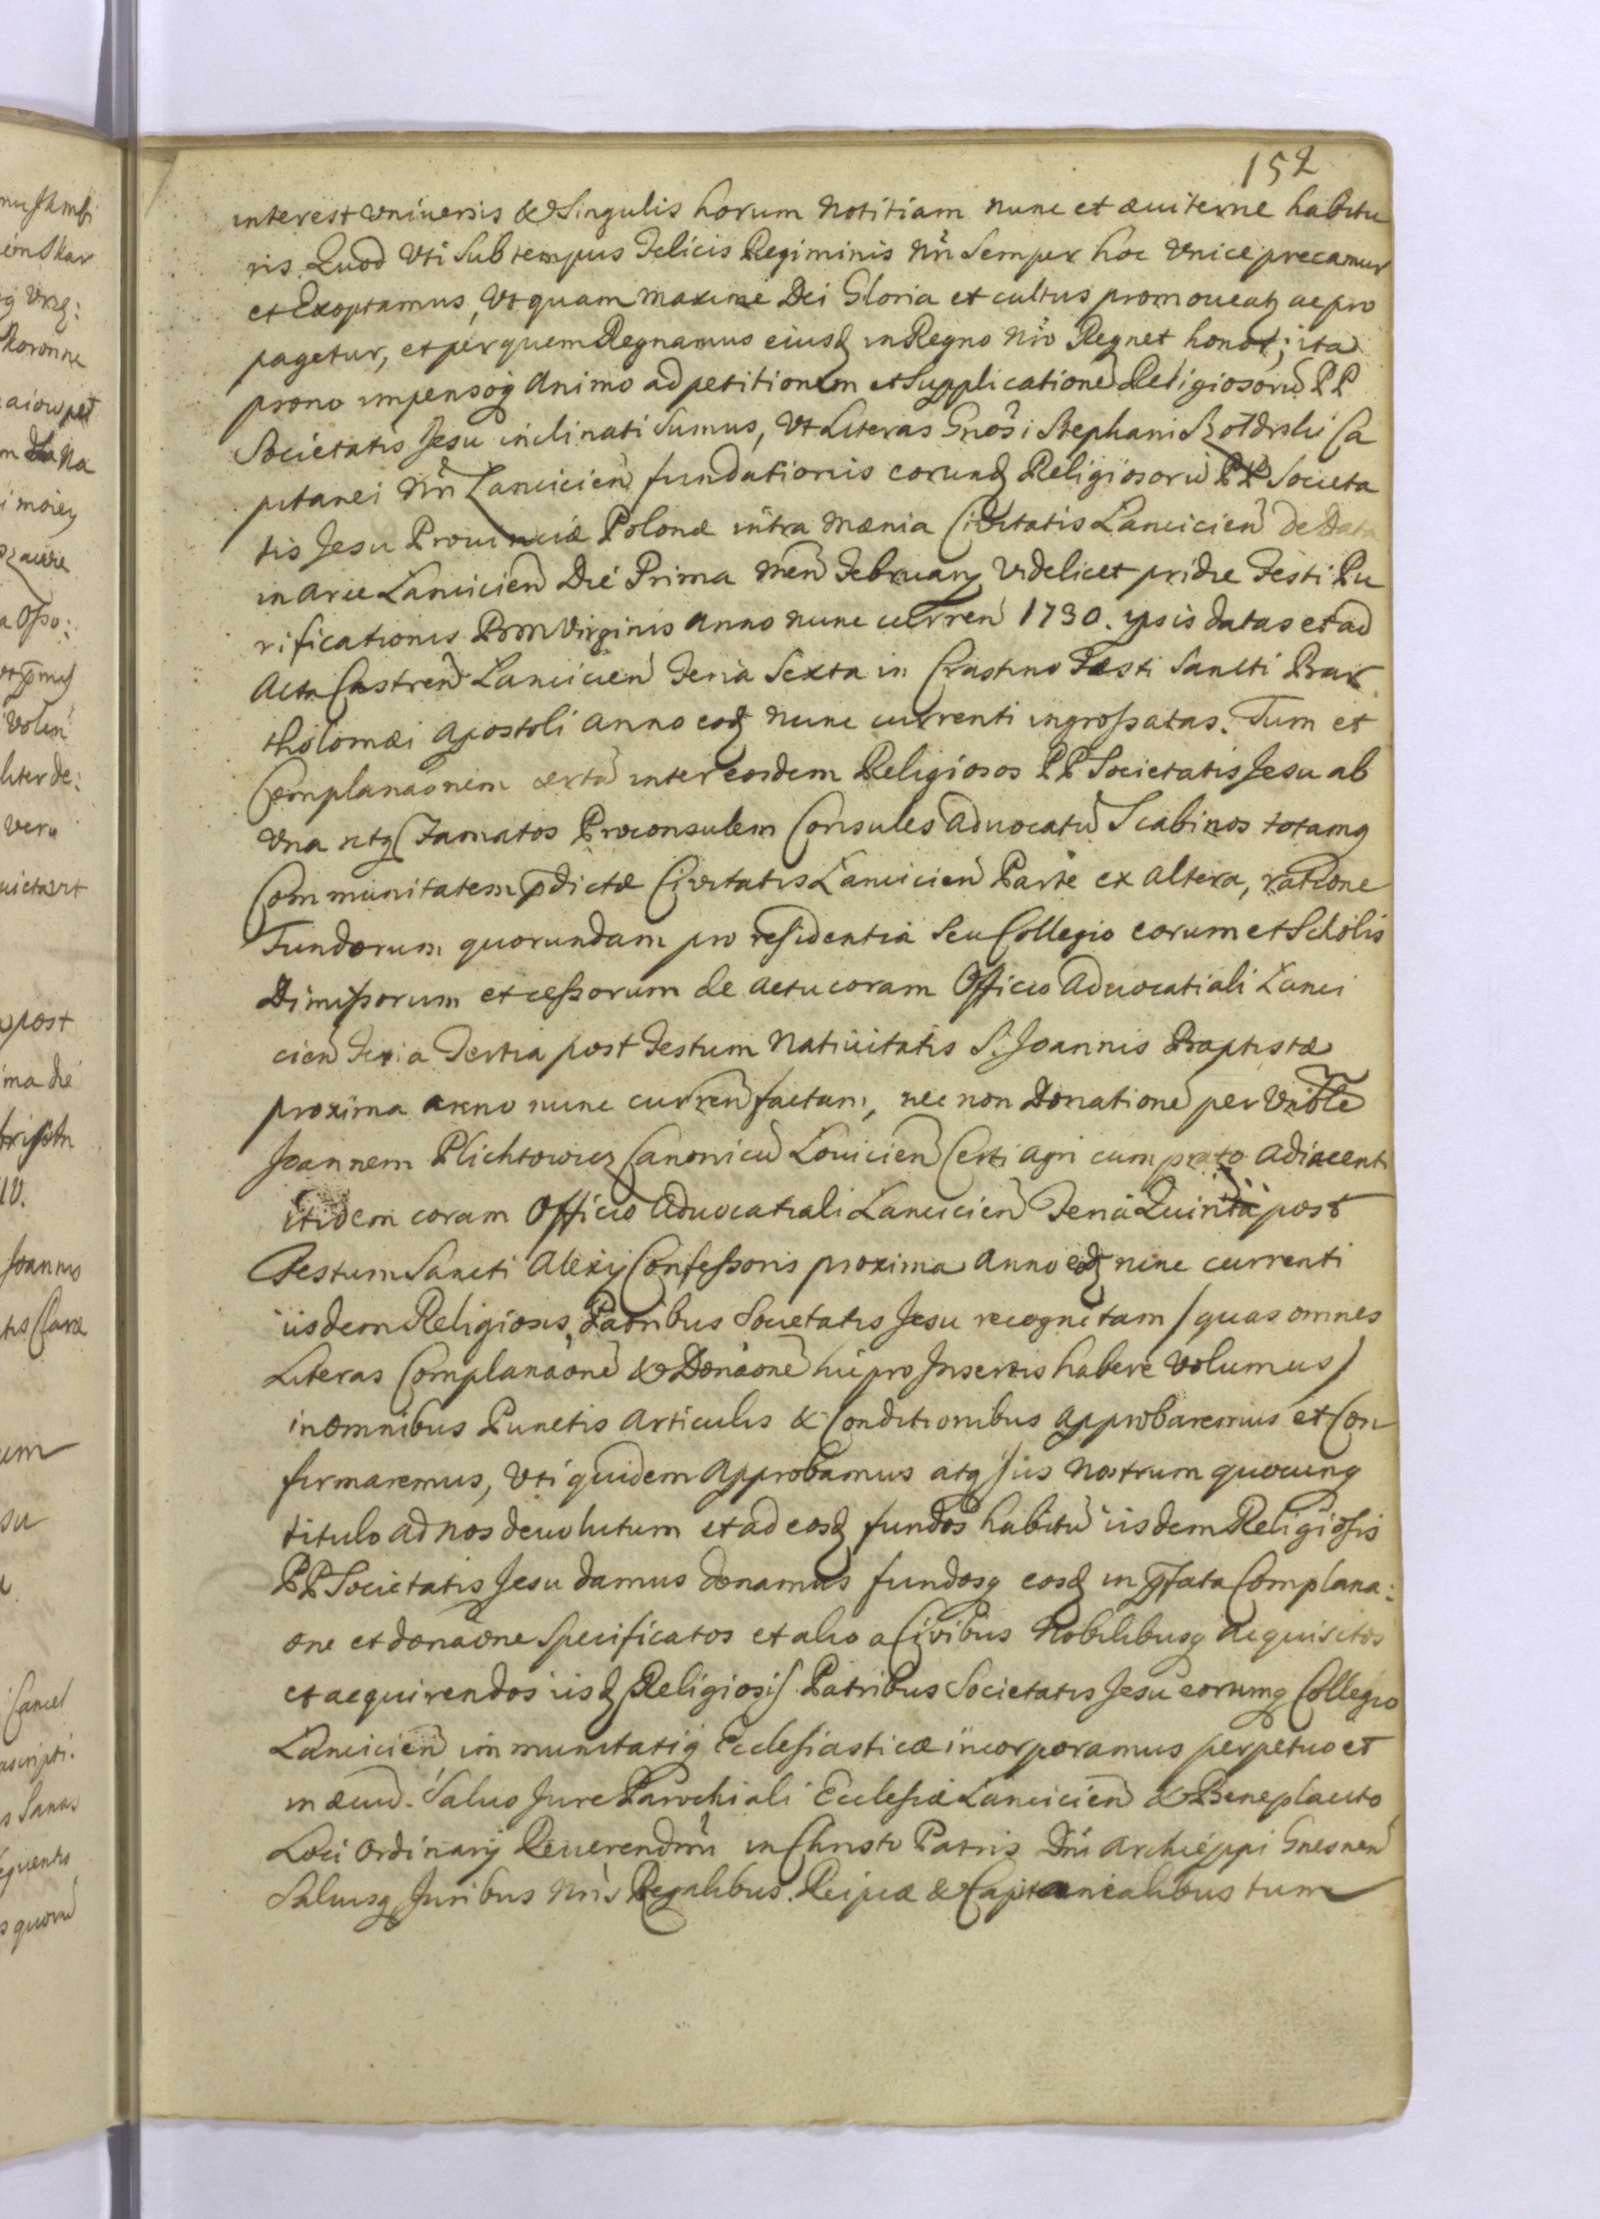 152
interest universis & Singulis horum Notitiam nunc et æuiterne habitu
ris. Quod Uti Sub tempus Felicis Regiminis Nri Semper hoc Unice precamur
et Exoptamus, Ut quam maxime Dei Gloria et cultus promoueatz ac pro
pagetur, et per quem Regnamus eiusd in Regno Nro Regnet honor; ita
prono impensoq Animo ad petitionem et Supplicatione Religiosoru PP
Societatis Jesu inclinati Sumus, Ut Literas Gnosi Stephani Szołdrski Ca
pitanei Nri Lancicien fundationis eorund Religiosoru PP Societa
tis Jesu Prouinciæ Polonæ intra Mænia Ciuitatis Lancicien de Data
in Arce Lancicien Die Prima Men February Videlicet pridie Festi Pu
rificationis BMVirginis Anno nunc curren 1730. ipsis datas et ad
Acta Castren Lancicien Feria Sexta in Crastino Fæsti Sancti Bar
tholomæi Apostoli Anno eod nunc currenti ingrossatas. Tum et
Complanaonem certa inter eosdem Religiosos PP Societatis Jesu ab
Una atq Famatos Proconsulem Consules Aduocatu Scabinos totamq
Communitatem pdictæ Ciuitatis Lancicien Parte ex Altera, ratione
Fundorum quorundam pro residentia Seu Collegio eorum et Scholis
Dimissorum et cessorum de Actu coram Officio Aduocatiali Lanci
cien Feria Tertia post Festum Natiuitatis S. Joannis Baptistæ
proxima Anno nunc curren factam, nec non Donatione per Vnble
Joannem Plichtowicz Canonicu Louicien Certi Agri cum prato Adiacenti
itidem coram Officio Aduocatiali Lancicien Feria Quinta post
Festum Sancti Alexij Confessoris proxima Anno eod nunc currenti
iisdem Religiosis Patribus Societatis Jesu recognitam / quas omnes
Literas Complanaone & Donaone hic pro Insertis habere Volumus /
in omnibus Punctis Articulis & Conditionibus Approbaremus et Con
firmaremus, Uti quidem Approbamus atq Jus Nostrum quocunq
titulo Ad Nos deuolutum et ad eosd fundos habitu iisdem Religiosis
PP Societatis Jesu damus donamus fundosq eosd in pfata Complana:
one et donaone Specificatos et alio a Civibus Nobilibusq Acquisitos
et acquirendos iisd Religiosis Patribus Societatis Jesu eorumq Collegio
Lancicien immunitatiq Ecclesiasticæ incorporamus perpetuo et
in æuu. Saluo Jure Parochiali Ecclesiæ Lancicien & Beneplacito
Loci Ordinarij Reuerendmi in Christo Patris Dni Archieppi Gnesnen
Saluisq Juribus Nris Regalibus. Reipcæ & Capitanealibus tum